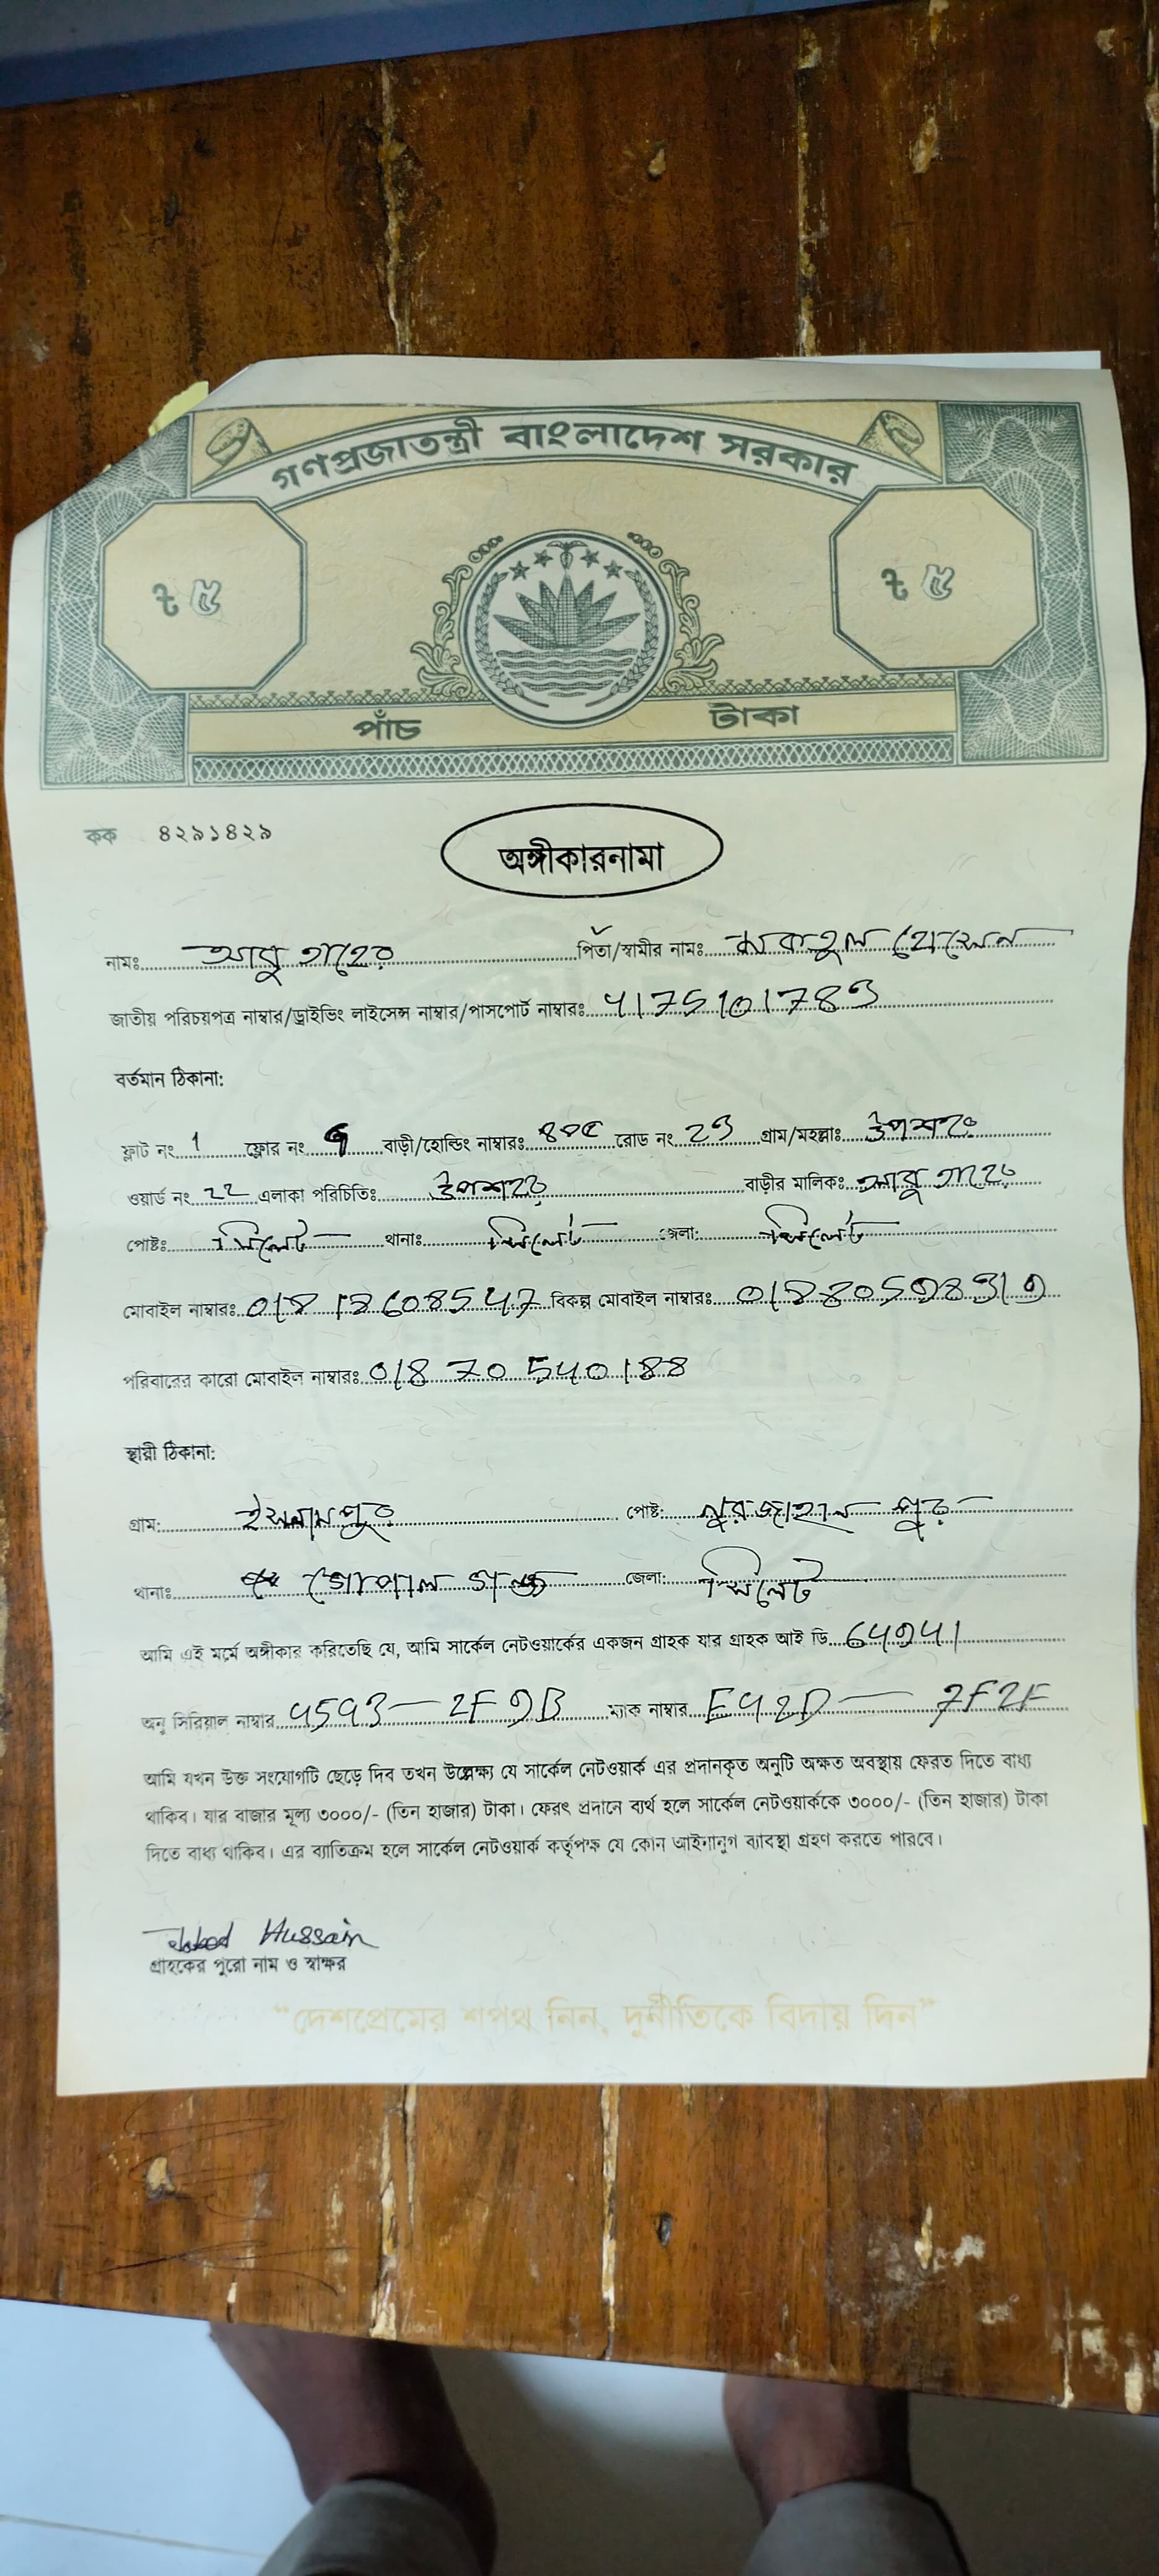 গণপ্রজাতন্ত্রী বাংলাদেশ সরকার
৳ ৫ ৳ ৫
পাঁচ টাকা
কক ৪২৯১৪২৯
অঙ্গীকারনামা
নামঃ আবু তাহের পিতা/স্বামীর নামঃ হোসেন
জাতীয় পরিচয়পত্র নাম্বার/ড্রাইভিং লাইসেন্স নাম্বার/পাসপোর্ট নাম্বারঃ
বর্তমান ঠিকানা:
ফ্লাট নং 1 ফ্লোর নং বাড়ী/হোল্ডিং নাম্বারঃ রোড নং গ্রাম/মহল্লাঃ উপশহর
ওয়ার্ড নং 22 এলাকা পরিচিতিঃ উপশহর বাড়ীর মালিকঃ আবু তাহের
পোষ্টঃ সিলেট থানাঃ সিলেট জেলা: সিলেট
মোবাইল নাম্বারঃ বিকল্প মোবাইল নাম্বারঃ
পরিবারের কারো মোবাইল নাম্বারঃ 01870540188
স্থায়ী ঠিকানা:
গ্রাম: ইসলামপুর পোষ্ট: নুরজাহান পুর
থানাঃ গোপাল গঞ্জ জেলা: সিলেট
আমি এই মর্মে অঙ্গীকার করিতেছি যে, আমি সার্কেল নেটওয়ার্কের একজন গ্রাহক যার গ্রাহক আই ডি
অনু সিরিয়াল নাম্বার ম্যাক নাম্বার
আমি যখন উক্ত সংযোগটি ছেড়ে দিব তখন উল্লেক্ষ্য যে সার্কেল নেটওয়ার্ক এর প্রদানকৃত অনুটি অক্ষত অবস্থায় ফেরত দিতে বাধ্য
থাকিব। যার বাজার মূল্য ৩০০০/- (তিন হাজার) টাকা। ফেরৎ প্রদানে ব্যর্থ হলে সার্কেল নেটওয়ার্ককে ৩০০০/- (তিন হাজার) টাকা
দিতে বাধ্য থাকিব। এর ব্যাতিক্রম হলে সার্কেল নেটওয়ার্ক কর্তৃপক্ষ যে কোন আইনানুগ ব্যাবস্থা গ্রহণ করতে পারবে।
Hussain
গ্রাহকের পুরো নাম ও স্বাক্ষর
“দেশপ্রেমের শপথ নিন, দুর্নীতিকে বিদায় দিন”